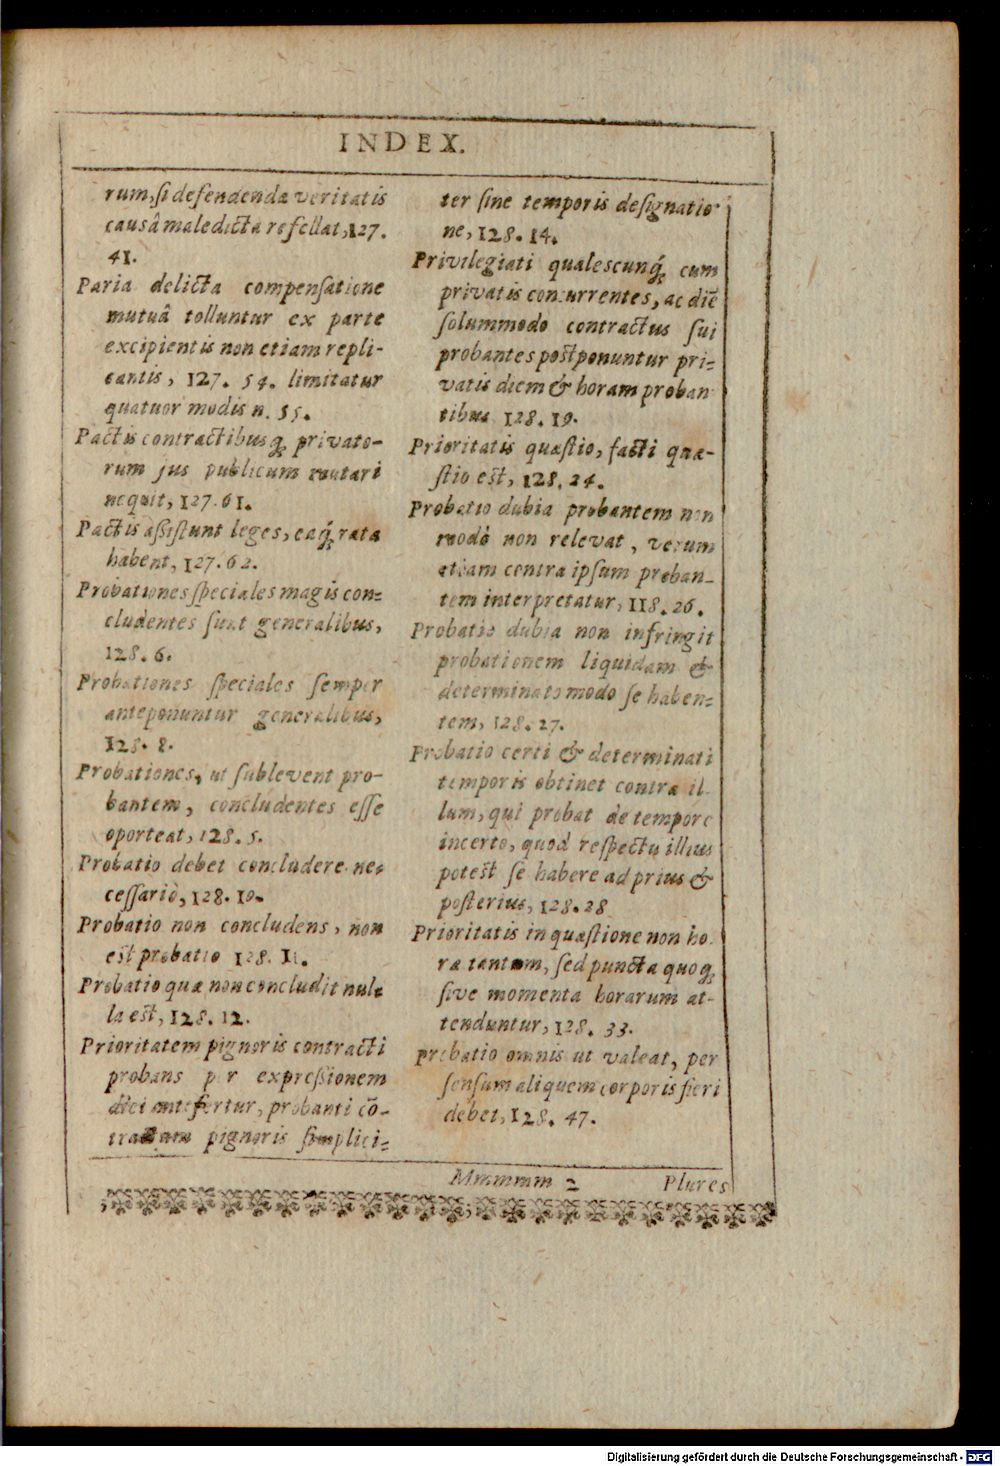 INDEX.
rum, si defendendæ veritatis
causâ maledicta refellat, 127.
41.
Paria delicta compensatione
mutuâ tolluntur ex parte
excipientis non etiam repli-
cantis, 127. 54. limitatur
quatuor modis n. 55.
Pactis contractibusq́; privato-
rum jus publicum mutari
nequit, 127. 61.
Pactis aßistunt leges, eaq́; rata
habent, 127. 62.
Probationes speciales magis con-
cludentes sunt generalibus,
128. 6.
Probationes speciales semper
anteponuntur generalibus,
128. 8.
Probationes, ut sublevent pro-
bantem, concludentes esse
oporteat, 128. 5.
Probatio debet concludere ne-
cessariò, 128. 10.
Probatio non concludens, non
est probatio 128. 11.
Probatio quæ non concludit nul-
la est, 128. 12.
Prioritatem pignoris contracti
probans per expreßionem
diei antefertur, probanti cō-
pignoris simplici-
ter sine temporis designatio-
ne, 128. 14.
Privilegiati qualescunq́; cum
privatis concurrentes, ac diē
solummodo contractus sui
probantes postponuntur pri-
vatis diem & horam proban
tibus 128. 19.
Prioritatis quæstio, facti quæ-
stio est, 128. 24.
Probatio dubia probantem non
modò non relevat, verum
etiam contra ipsum proban-
tem interpretatur, 118. 26.
Probatio dubia non infringit
probationem liquidam &
determinato modo se haben-
tem, 128. 27.
Probatio certi & determinati
temporis obtinet contra il-
lum, qui probat de tempore
incerto, quod respectu illius
potest se habere ad prius &
posterius, 128. 28
Prioritatis in quæstione non ho-
ræ tantum, sed puncta quoq́;
sive momenta horarum at-
tenduntur, 128. 33.
Probatio omnis ut valeat, per
sensum aliquem corporis fieri
debet, 128. 47.
Mmmmm 2 Plures
Digitalisierung gefördert durch die Deutsche Forschungsgemeinschaft - DFG